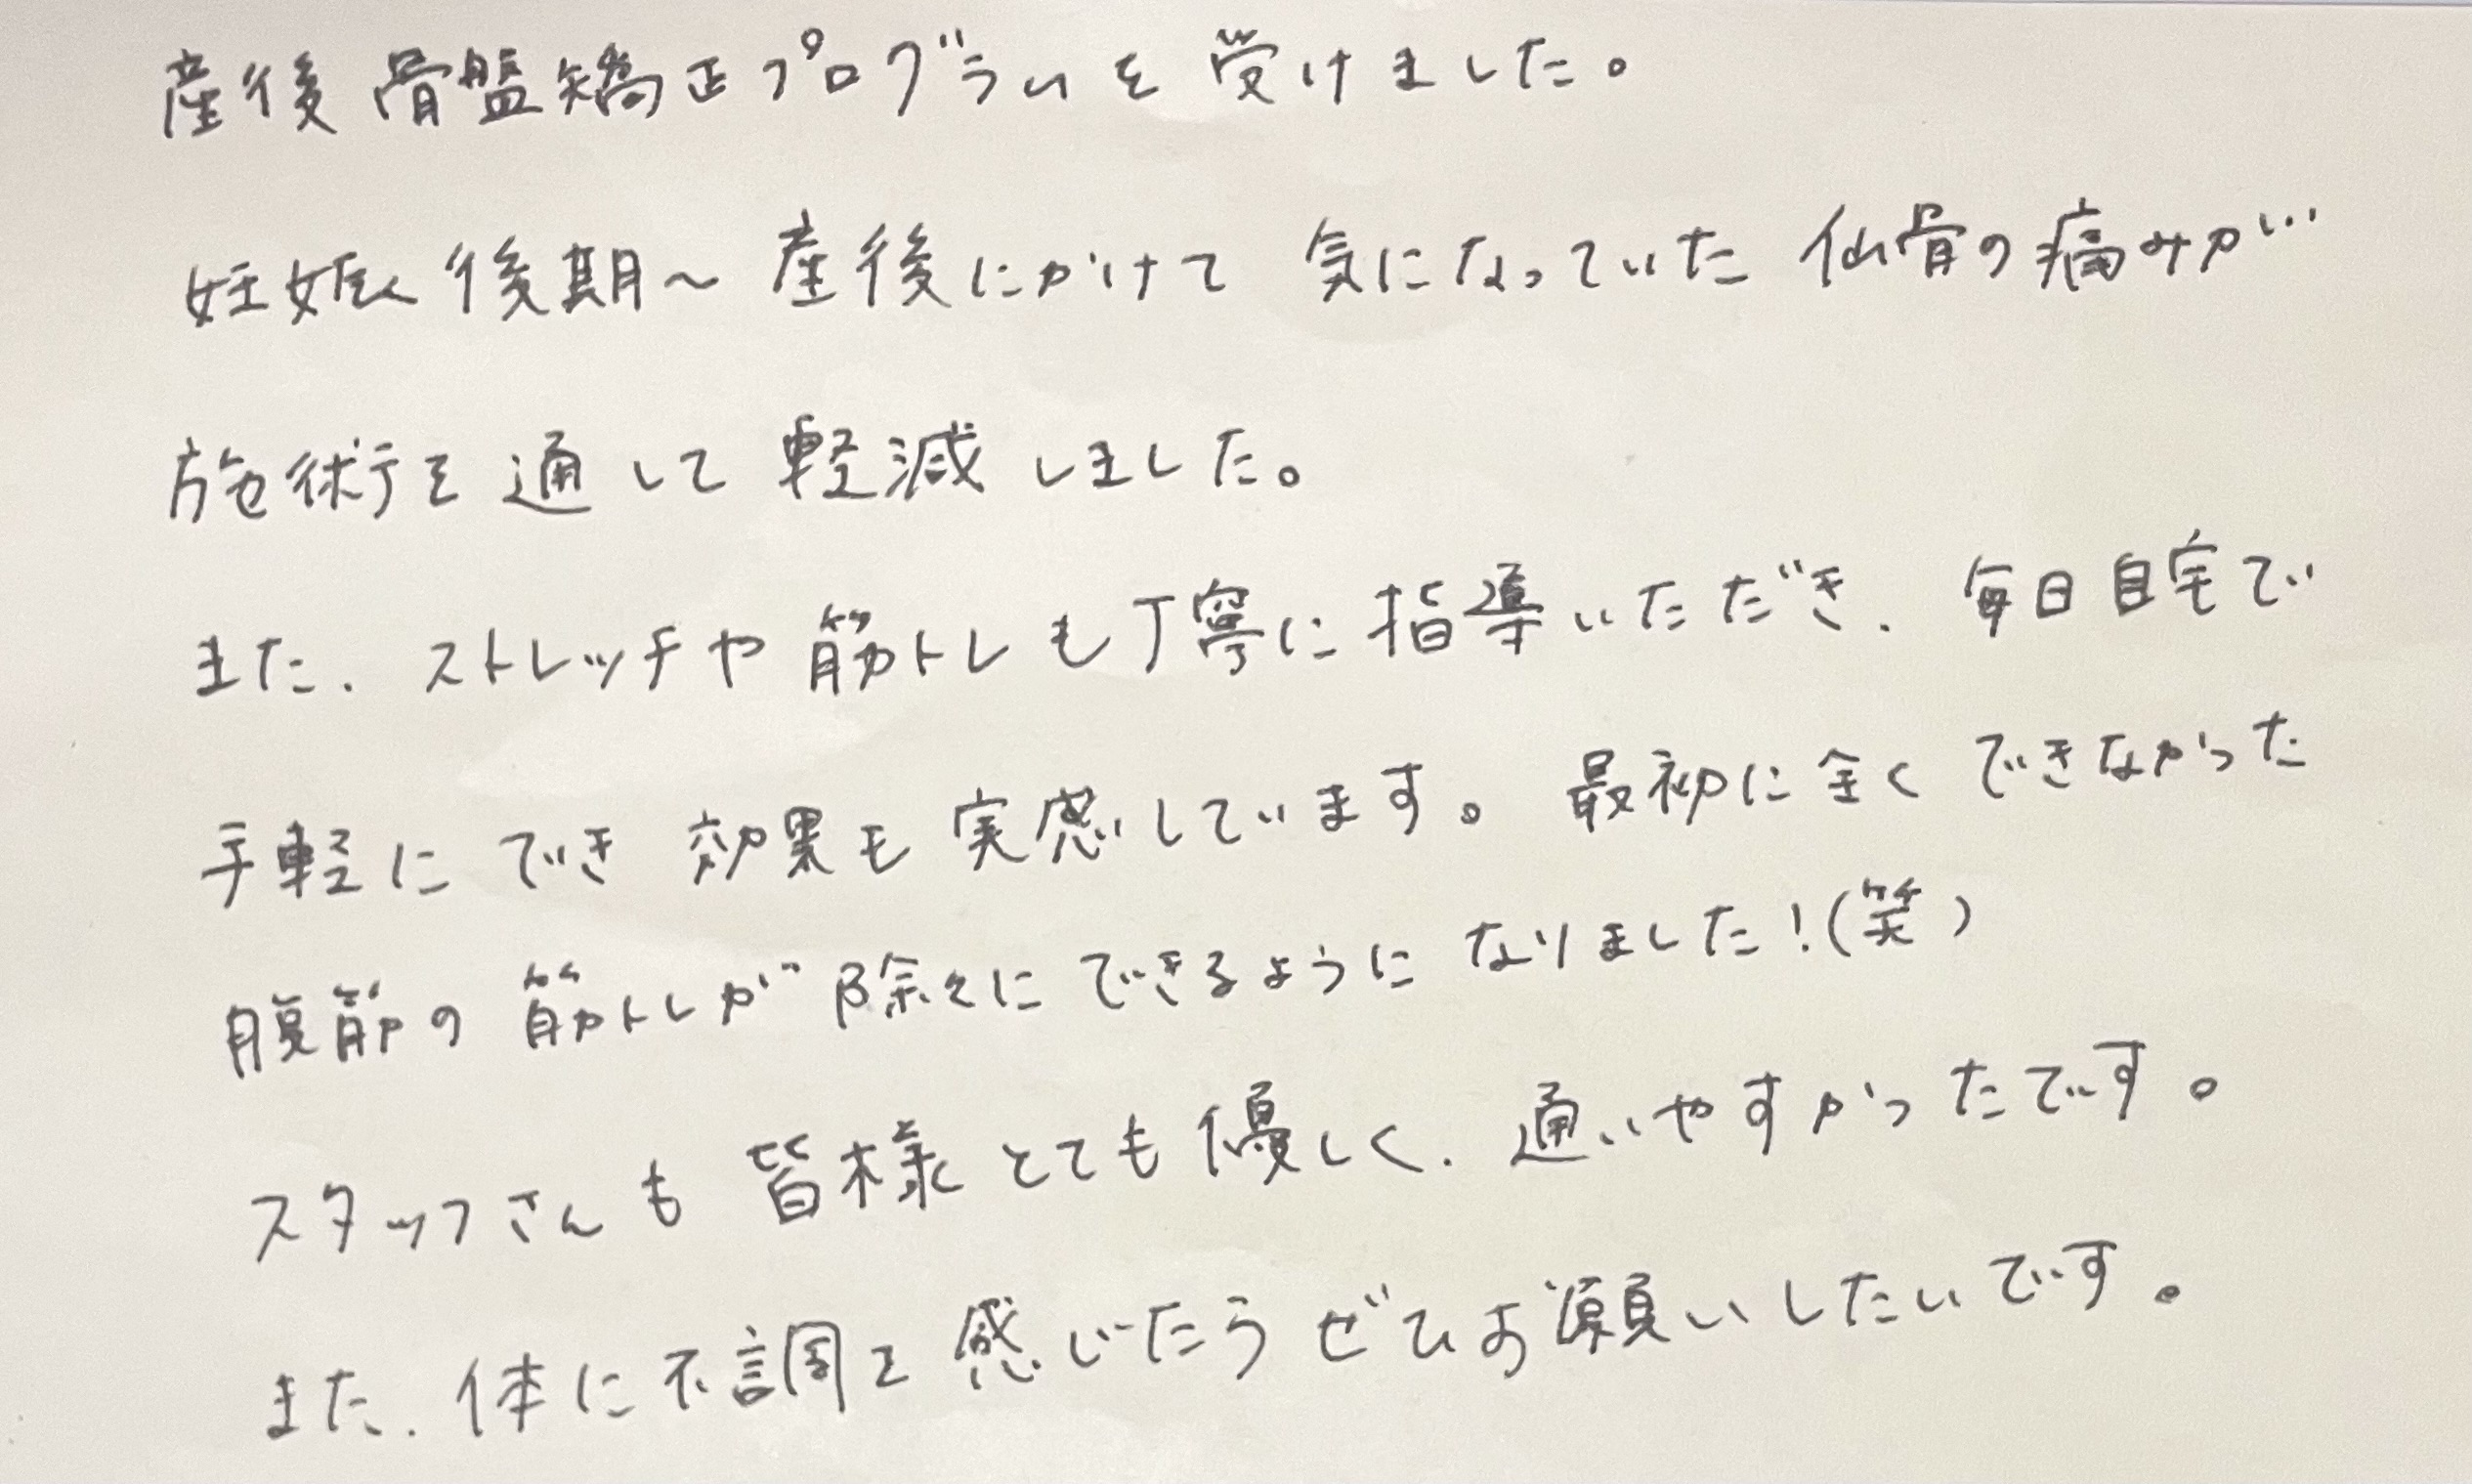 産後骨盤矯正プログラムを受けました。
妊娠後期～産後にかけて気になっていた仙骨の痛みが
施術を通して軽減しました。
また、ストレッチや筋トレも丁寧に指導いただき、毎日自宅で
手軽にでき効果も実感しています。最初に全くできなかった
腹筋の筋トレが除々にできるようになりました！(笑)
スタッフさんも皆様とても優しく、通いやすかったです。
また、体に不調を感じたらぜひお願いしたいです。